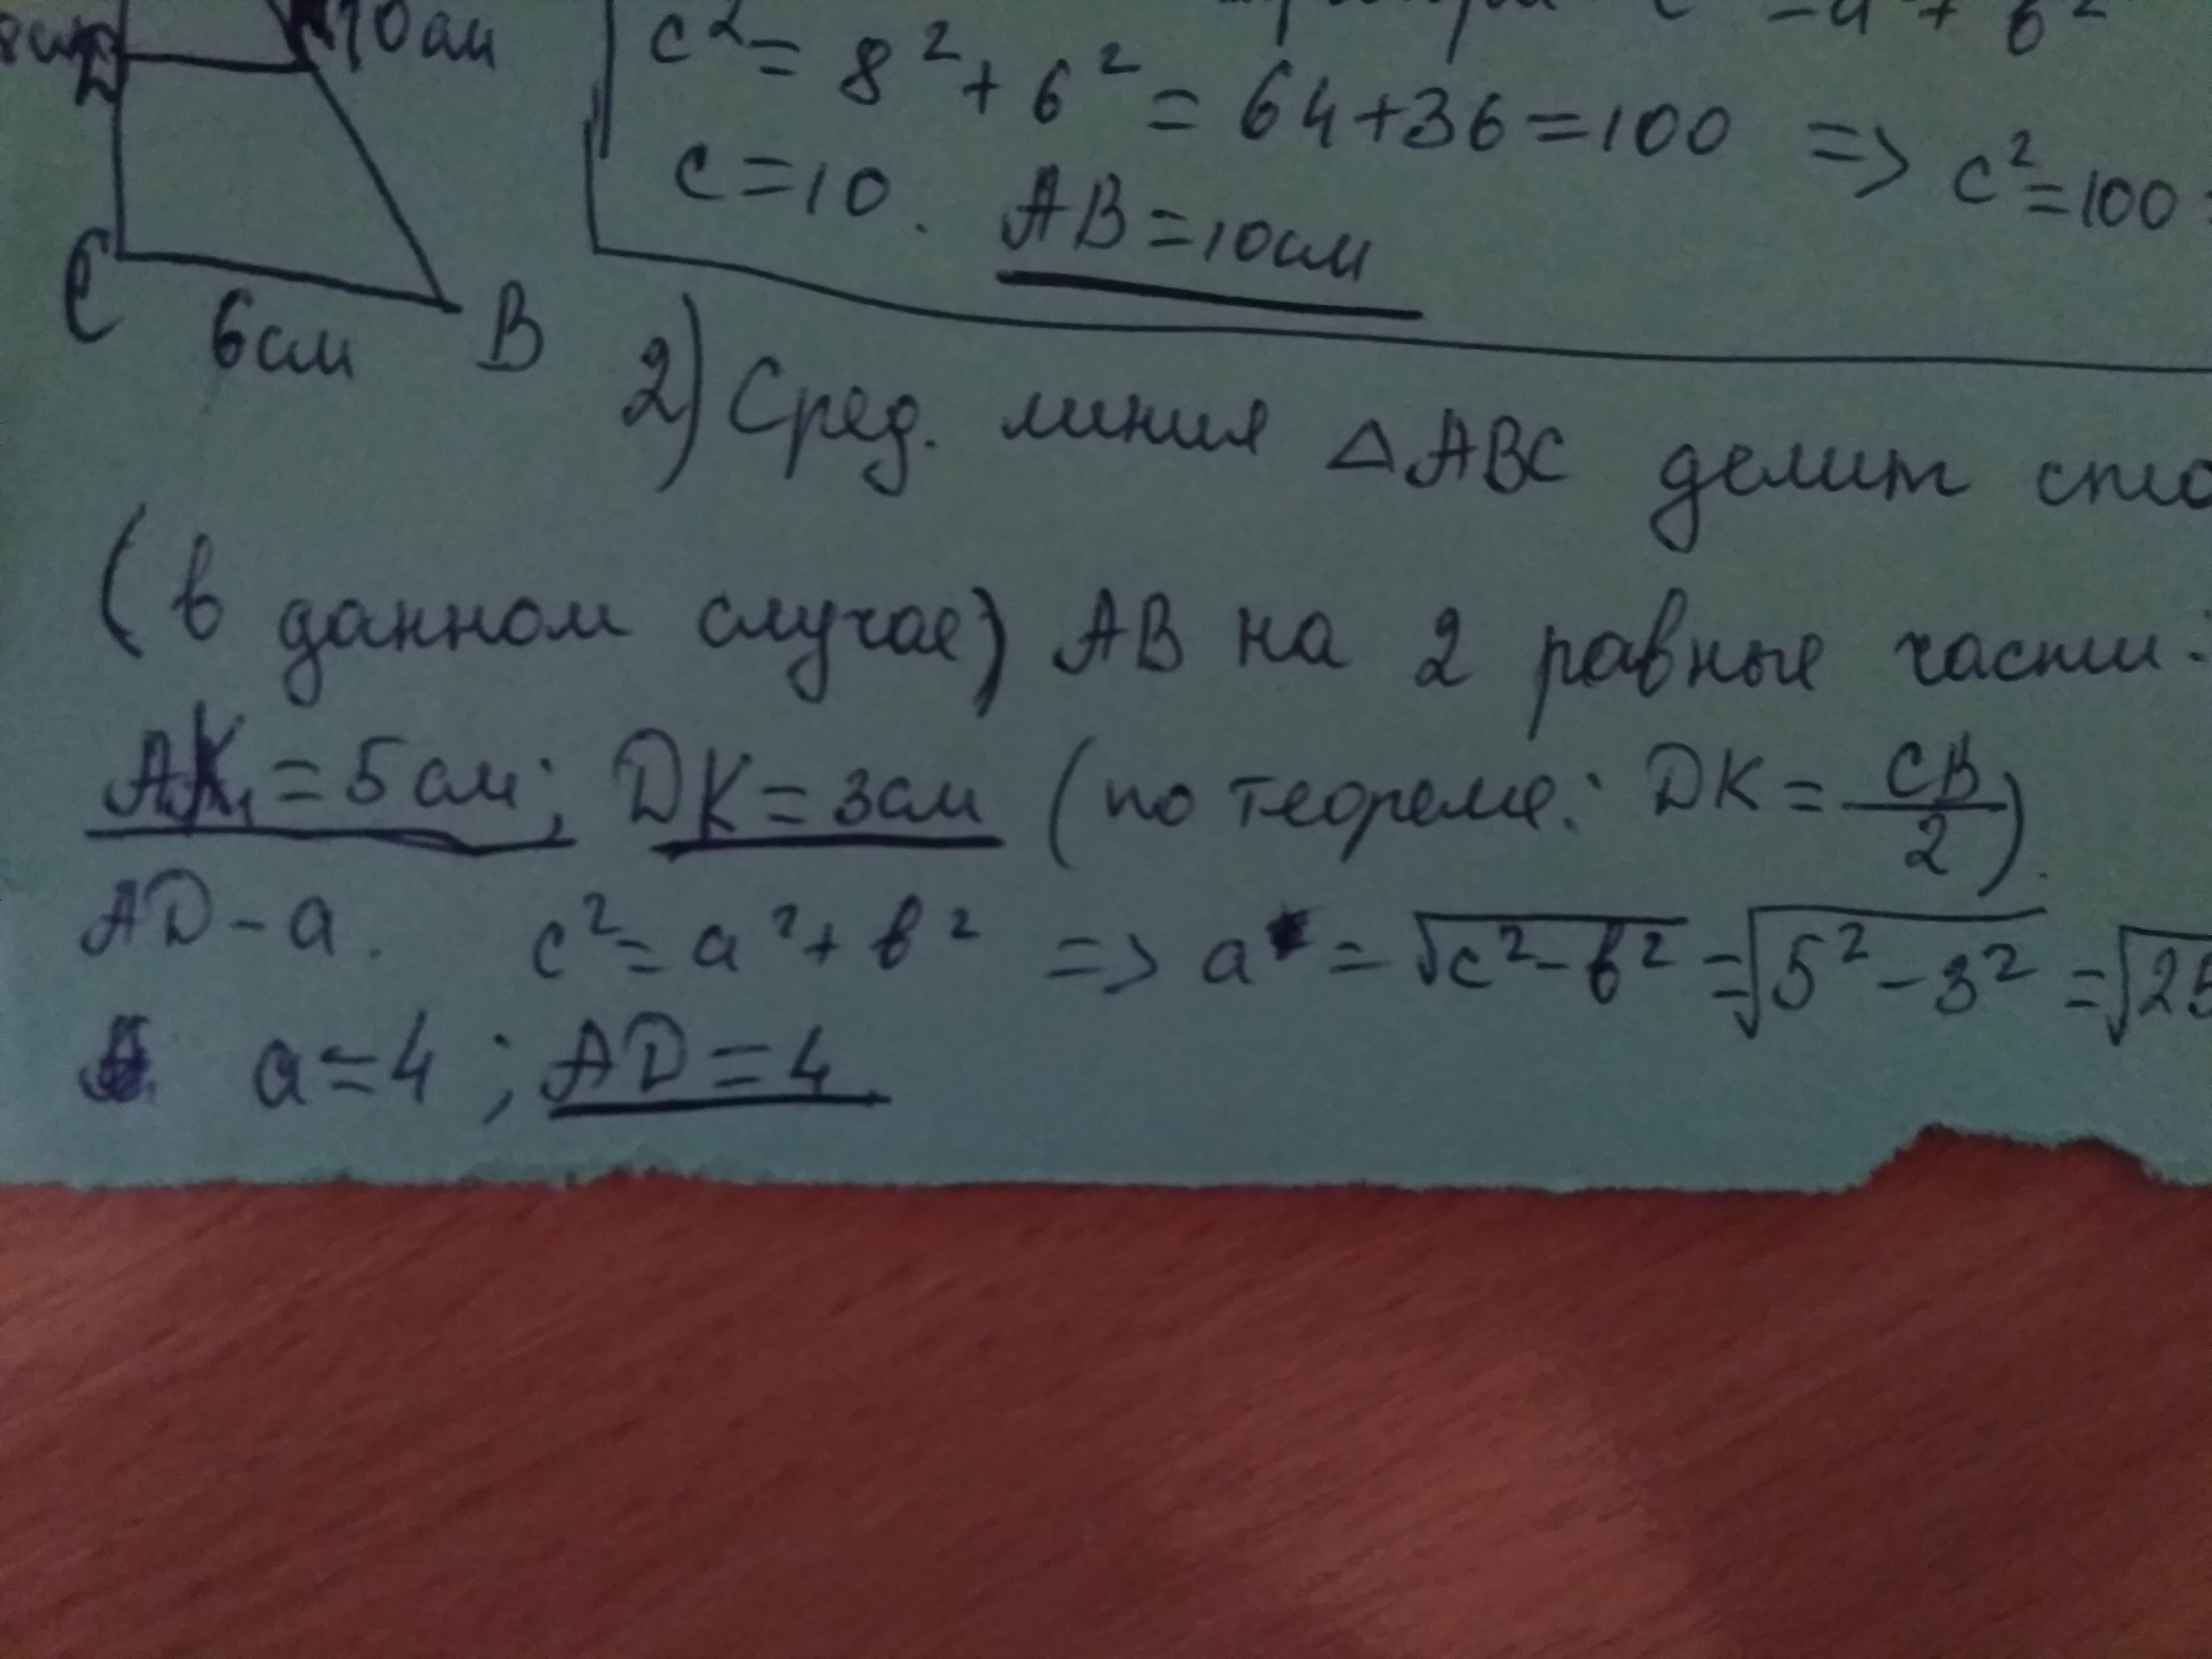 8см 10см
c² = 8² + 6² = 64+36=100 => c²=100
c=10. AB=10см
C
6см B
2) Сред. линия △ABC делит
(в данном случае) AB на 2 равные части:
AK₁ = 5см; DK = 3см (по теореме: DK = CB/2).
AD - a. c² = a² + b² => a = √c²-b² = √5²-3² = √25
a=4; AD=4